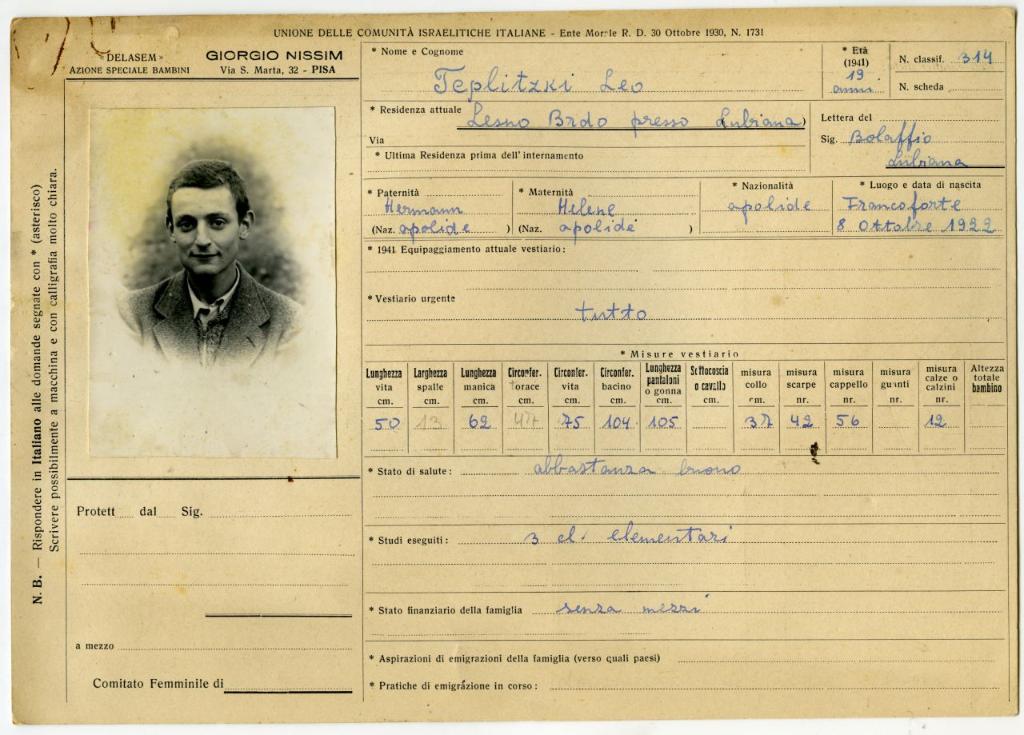 UNIONE DELLE COMUNITÀ ISRAELITICHE ITALIANE - Ente Morale R. D. 30 Ottobre 1930, N. 1731
«DELASEM»
AZIONE SPECIALE BAMBINI
GIORGIO NISSIM
Via S. Marta, 32 - PISA
N. B. — Rispondere in Italiano alle domande segnate con * (asterisco)
Scrivere possibilmente a macchina e con calligrafia molto chiara.
* Nome e Cognome
Teplitzki Leo
* Età
(1941)
19
anni
N. classif. 314
N. scheda
* Residenza attuale Lesno Brdo presso Lubiana)
Via
* Ultima Residenza prima dell'internamento
Lettera del
Sig. Bolaffio
Lubiana
* Paternità
Hermann
(Naz. apolide )
* Maternità
Helene
(Naz. apolide )
* Nazionalità
apolide
* Luogo e data di nascita
Francoforte
8 Ottobre 1922
* 1941 Equipaggiamento attuale vestiario:
* Vestiario urgente
tutto
* Misure vestiario
Lunghezza vita cm. 50
Larghezza spalle cm. 13
Lunghezza manica cm. 62
Circonfer. torace cm. 47
Circonfer. vita cm. 75
Circonfer. bacino cm. 104
Lunghezza pantaloni o gonna cm. 105
Sottocoscia o cavallo cm.
misura collo cm. 37
misura scarpe nr. 42
misura cappello nr. 56
misura guanti nr.
misura calze o calzini nr. 12
Altezza totale bambino
* Stato di salute: abbastanza buono
* Studi eseguiti: 3 cl. elementari
* Stato finanziario della famiglia senza mezzi
* Aspirazioni di emigrazioni della famiglia (verso quali paesi)
* Pratiche di emigrazione in corso:
Protett dal Sig.
a mezzo
Comitato Femminile di